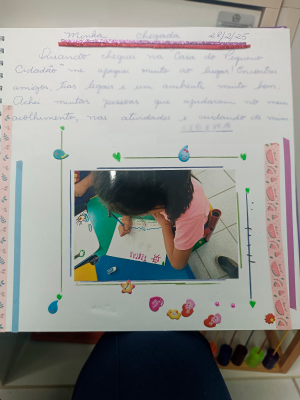 Minha chegada 28/2/25
Quando cheguei na Casa do Pequeno
Cidadão me apeguei muito ao lugar! Encontrei
amigos, tias legais e um ambiente muito bom.
Achei muitas pessoas que ajudaram no meu
acolhimento, nas atividades e cuidando de mim